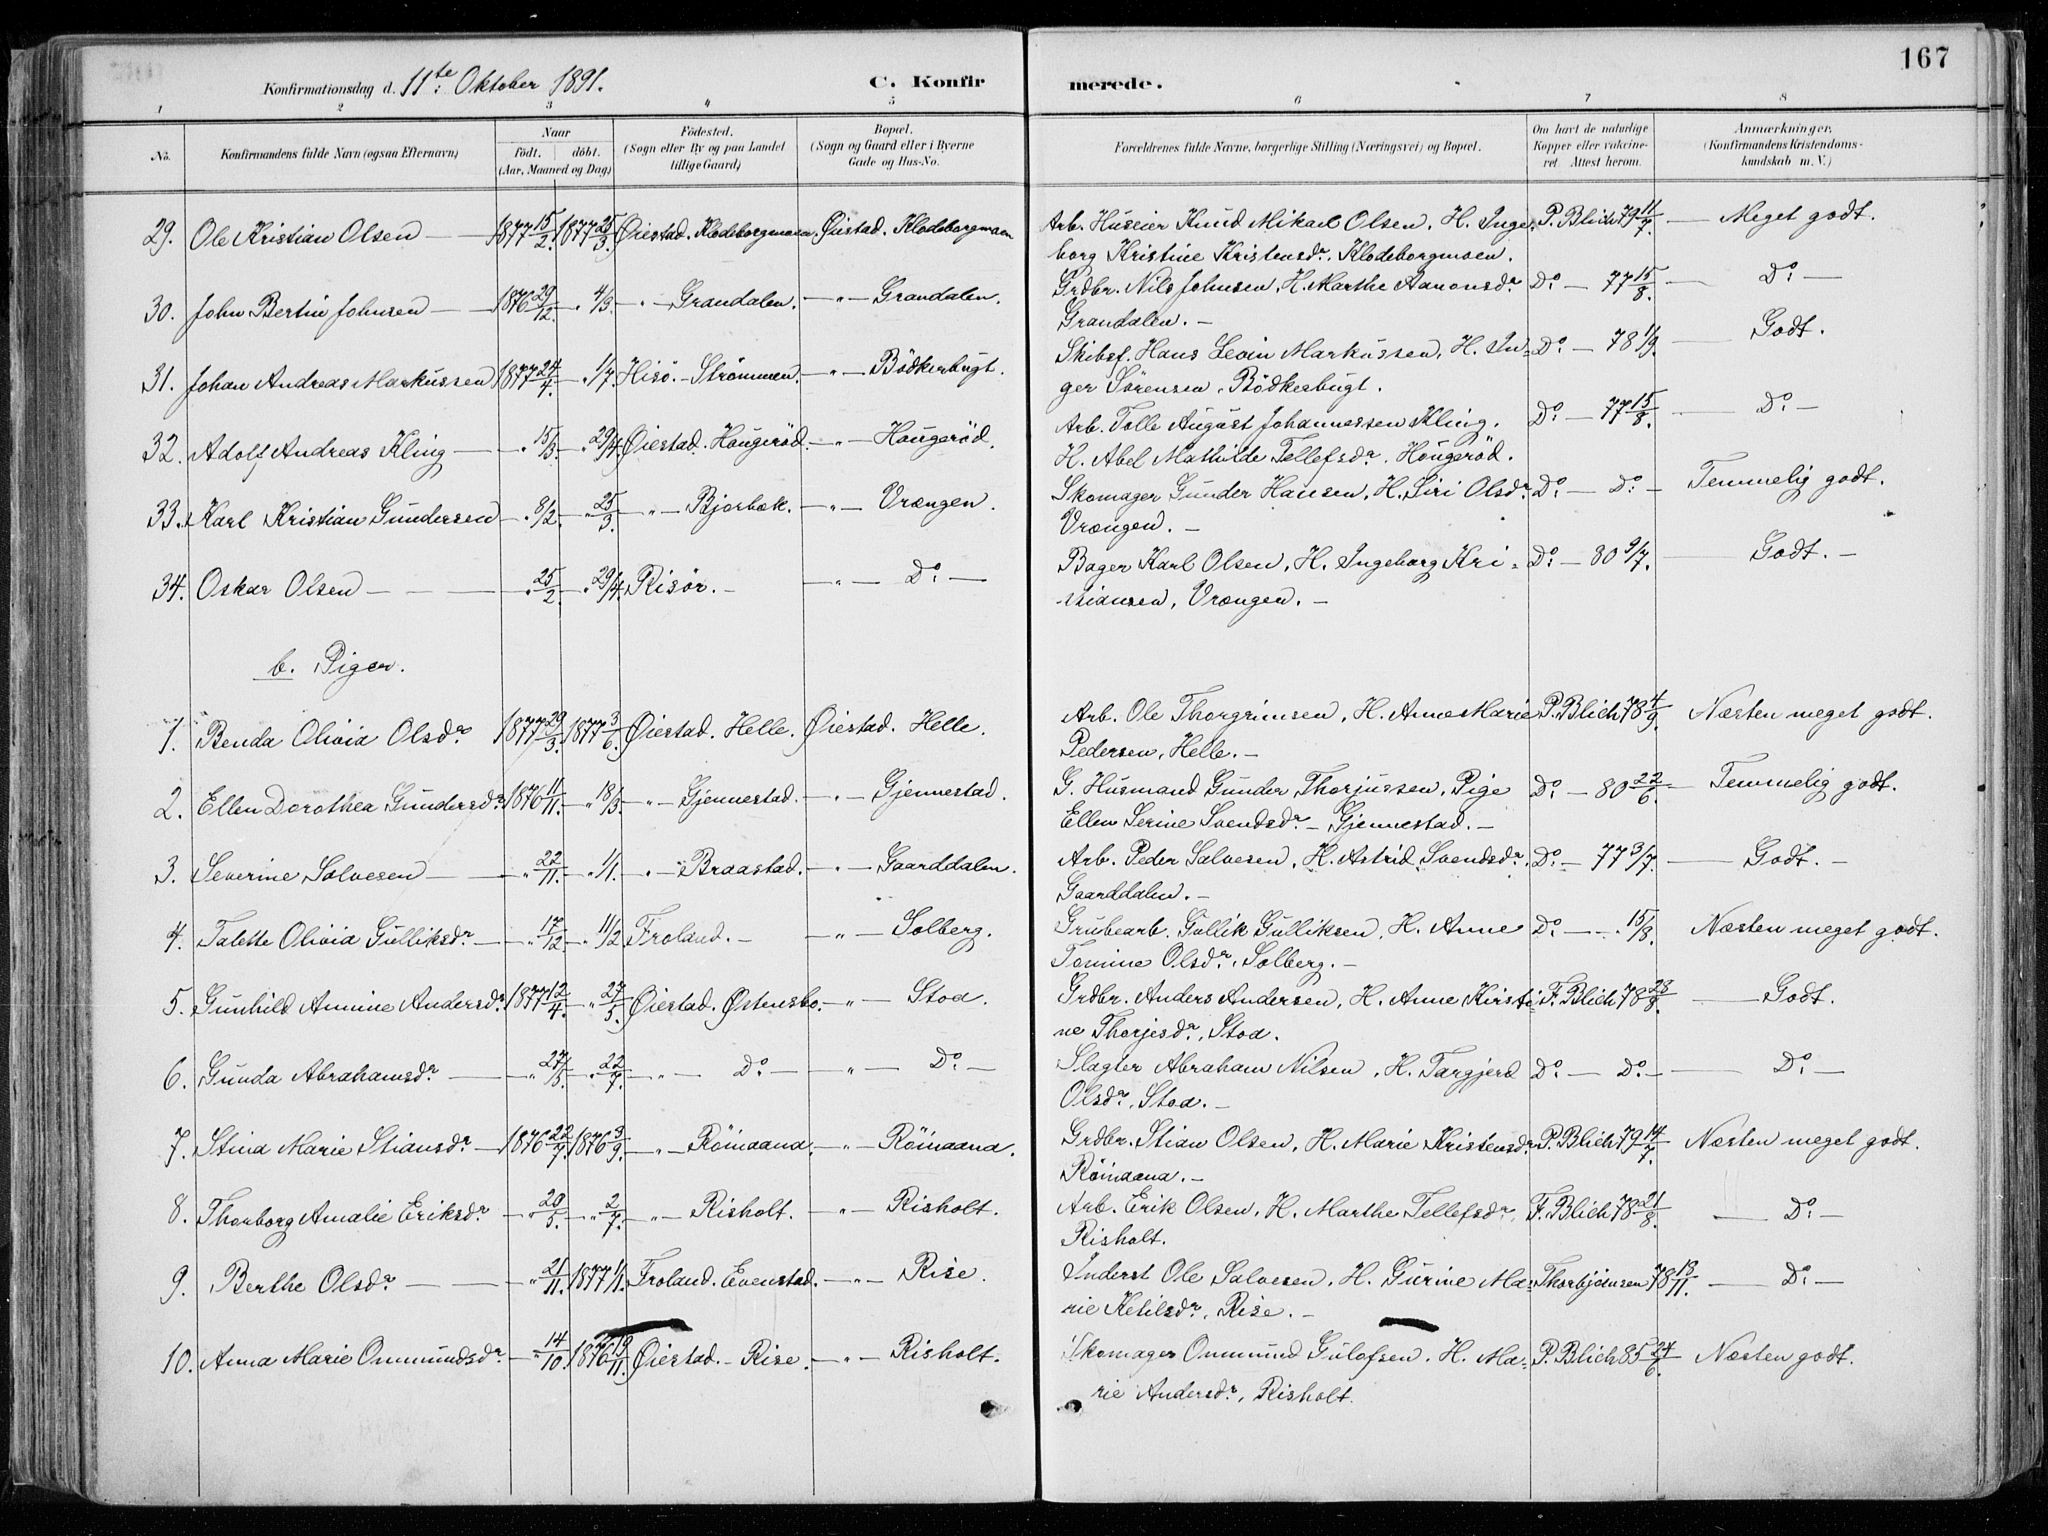 167
Konfirmationsdag d. 11te Oktober 1891.
C. Konfirmerede.
1 2 3 4 5 6 7 8
No. Konfirmandens fulde Navn (ogsaa Efternavn) Naar födt. döbt. (Aar, Maaned og Dag) Födested. (Sogn eller By og paa Landet tillige Gaard) Bopæl. (Sogn og Gaard eller i Byerne Gade og Hus-No. Forældrenes fulde Navne, borgerlige Stilling (Næringsvei) og Bopæl. Om havt de naturlige Kopper eller vakcineret. Attest herom. Anmærkninger. (Konfirmandens Kristendomskundskab m. V.)
29. Ole Kristian Olsen — 1877 15/2. 1877 25/3. Øiestad. Klodeborgmoen. Øiestad. Klodeborgmoen Arb. Huseier Knud Mikael Olsen, H. Inge- P. Blich 79 11/7. — Meget godt.
borg Kristine Kristensdr. Klodeborgmoen.
30. John Bertin Johnsen — 1876 29/12. — " 4/3. — " — Grandalen. — " — Grandalen. Grdbr. Nils Johnsen, H. Marthe Aanonsdr. Do. — 77 15/8. — Do. —
Grandalen. —
31. Johan Andreas Markussen 1877 24/4. — " 1/7. Hisö. — Strömmen. — " — Bödkerbugt. Skibsf. Hans Levin Markussen, H. In- Do. — 78 1/9. — Godt.
ger Sörensen, Bödkerbugt.
32. Adolf Andreas Kling — " 15/3. — " 29/4. Øiestad. Hougeröd. — " — Hougeröd. Arb. Tolle August Johannessen Kling. Do. — 77 15/8. — Do. —
H. Abel Mathilde Tellefsdr. Hougeröd.
33. Karl Kristian Gundersen — " 8/2. — " 25/3. — " — Bjorbæk. — " — Vrængen. Skomager Gunder Hansen, H. Siri Olsdr. Do. — Do. — Temmelig godt.
Vrængen. —
34. Oskar Olsen — " 25/2. — " 29/4. Risör. — — " — Do. — Bager Karl Olsen, H. Ingeborg Kri- Do. — 80 9/7. — Godt. —
stiansen, Vrængen. —
b. Piger.
1. Benda Olivia Olsdr. 1877 29/3. 1877 3/6. Øiestad. Helle. Øiestad. Helle. Arb. Ole Thorgrimsen, H. Anne Marie P. Blich 78 4/9. Næsten meget godt.
Pedersen, Helle. —
2. Ellen Dorothea Gundersdr. 1876 11/11. — " 18/3. — " — Gjennestad. — " — Gjennestad. G. Husmand Gunder Thorjussen, Pige Do. — 80 22/6. — Temmelig godt.
Ellen Serine Svendsdr. — Gjennestad. —
3. Severine Salvesen — " 22/11. — " 1/1. — " — Braastad. — " — Gaarddalen. Arb. Peder Salvesen, H. Astrid Svendsdr. Do. — 77 3/7. — Godt. —
Gaarddalen. —
4. Talette Olivia Gulliksdr. — " 17/12. — " 11/2. Froland. — — " — Solberg. Grubearb. Gullik Gulliksen, H. Anne Do. — " 15/8. Næsten meget godt.
Tomine Olsdr. Solberg. —
5. Gunhild Amine Andersdr. 1877 12/4. — " 27/5. Øiestad. Østensbo. — " — Stoa. Grdbr. Anders Andersen, H. Anne Kirsti- F. Blich 78 28/8. — Godt.
ne Thorjesdr. Stoa.
6. Gunda Abrahamsdr. — " 27/5. " 22/7. — " — Do. — " — Do. — Slagter Abraham Nilsen, H. Targjerd Do. — Do. — — Do. —
Olsdr. Stoa. —
7. Stina Marie Stiansdr. — 1876 22/7. 1876 3/9. — " — Röinaana. — " — Röinaana. Grdbr. Stian Olsen, H. Marie Kristensdr. P. Blich 79 14/7. Næsten meget godt.
Röinaana. —
8. Thorborg Amalie Eriksdr. — " 20/5. — " 2/7. — " — Risholt. — " — Risholt. Arb. Erik Olsen, H. Marthe Tellefsdr. F. Blich 78 21/8. — Do. —
Risholt.
9. Berthe Olsdr. — " 21/11. 1877 1/1. Froland. Evenstad. — " — Rise. Inderst Ole Salvesen, H. Gurine Ma- Thorbjörnsen 78 13/11. — Do. —
rie Ketilsdr. Rise. —
10. Anna Marie Ommundsdr. — " 14/10. 1876 19/11. Øiestad. — Rise. — " — Risholt. Skomager Ommund Gulofsen, H. Ma- P. Blich 85 24/6. Næsten godt.
rie Andersdr. Risholt.